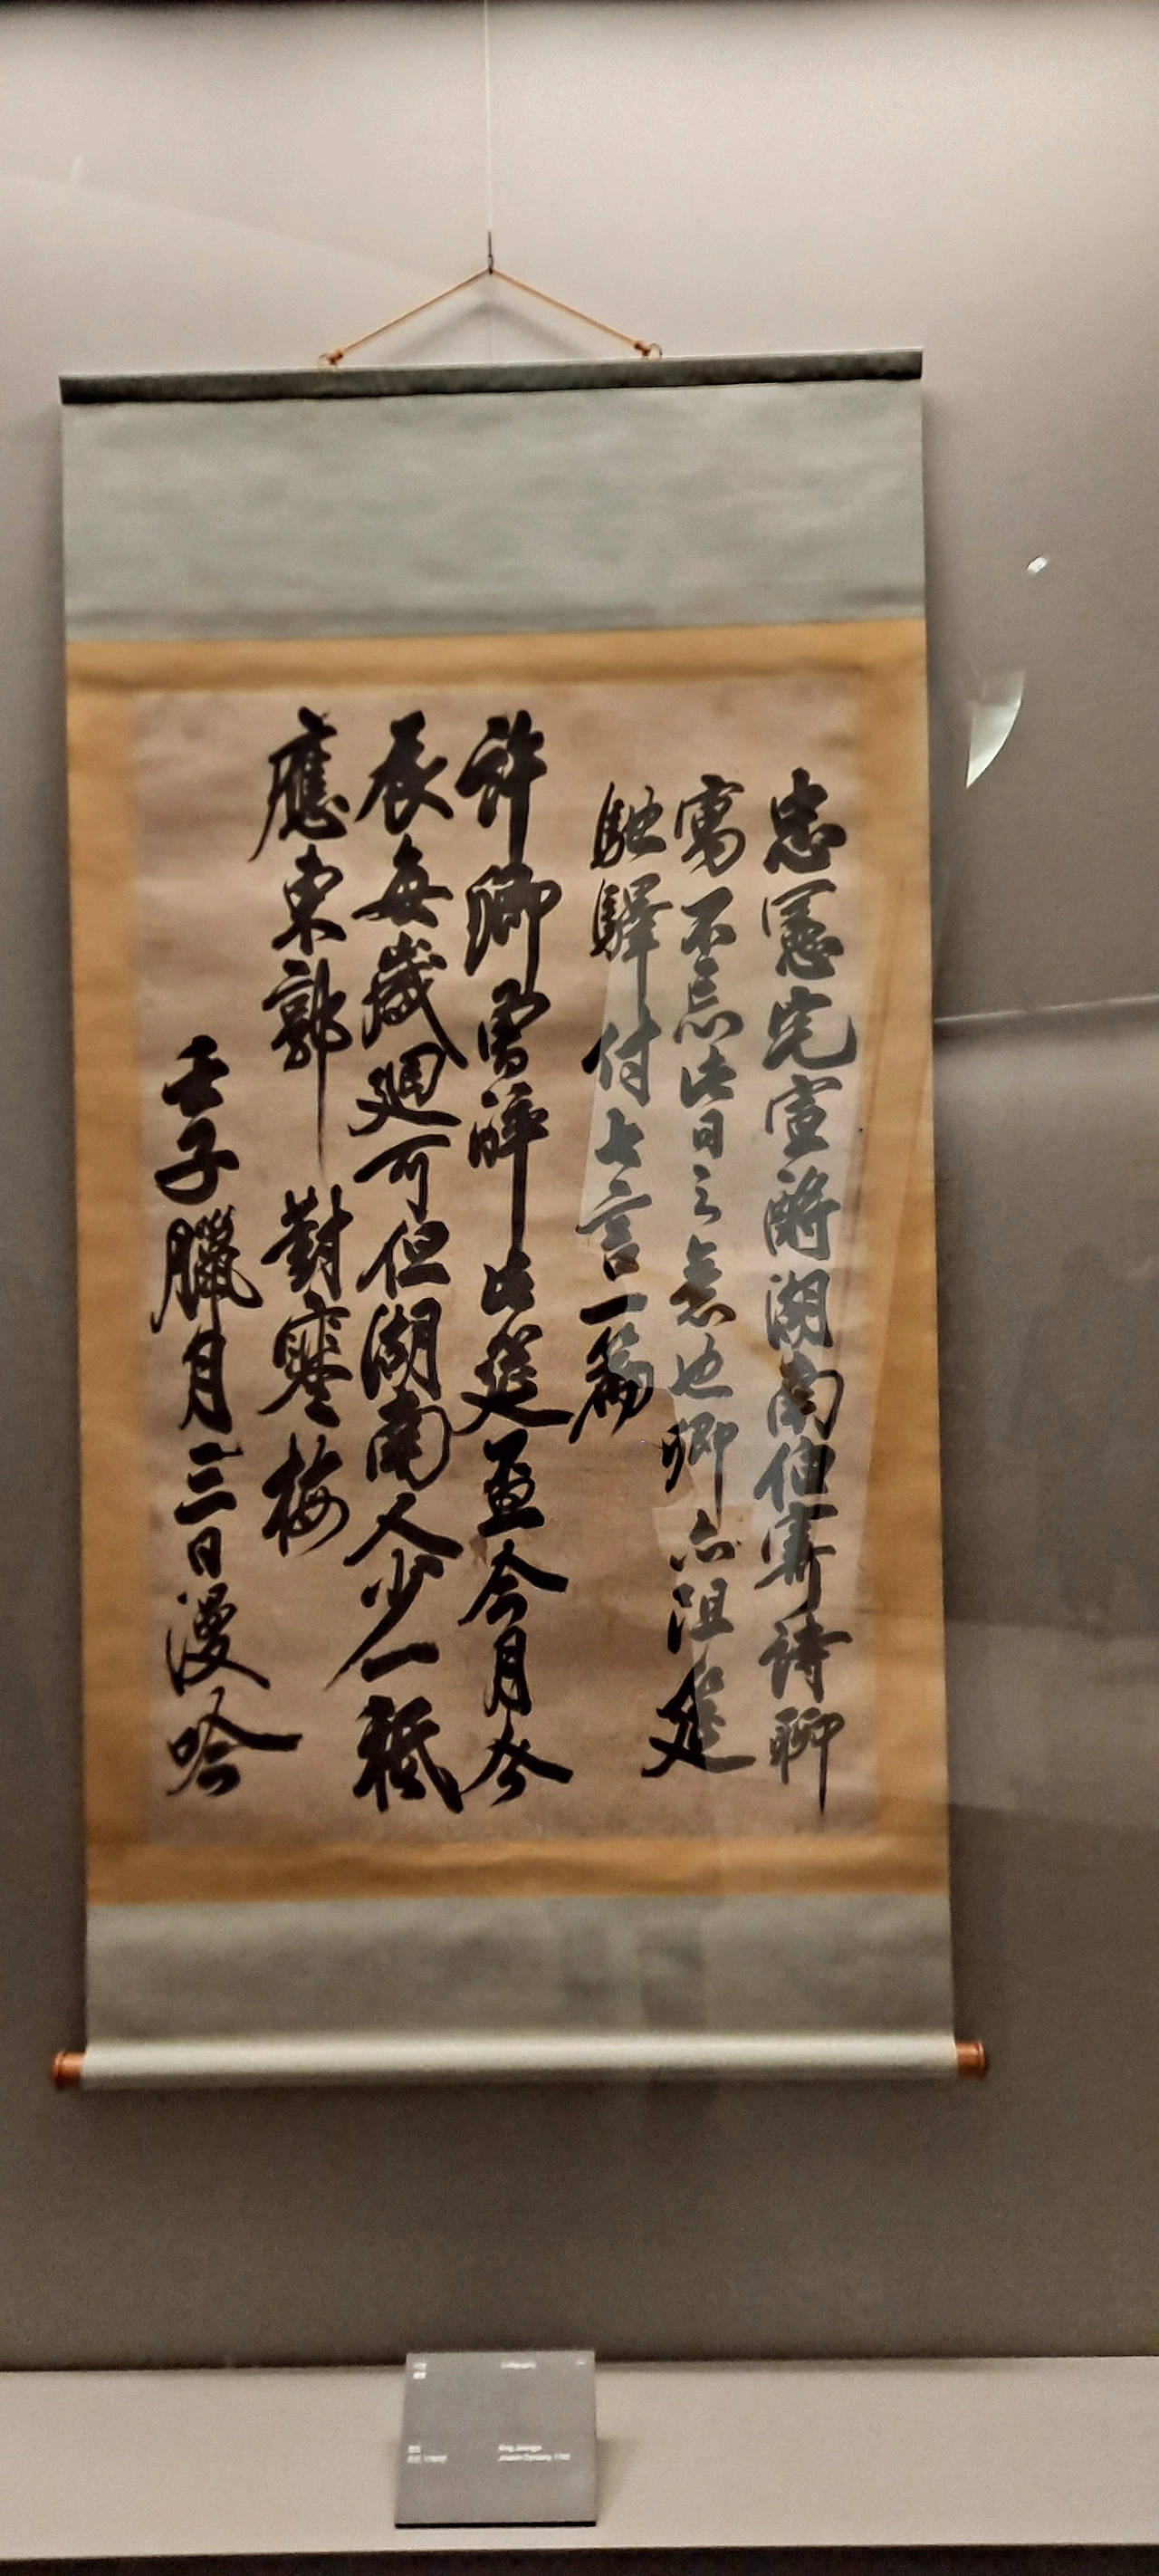 忠憲完湖南伯寄詩聊
寓不忘此日之意也卿亦阻筵
馳驛付七言一篇
許卿醉此筵盃今月今
辰每歲廻可但湖南人少一祗
應東郭 對寒梅
壬子臘月三日漫吟
Calligraphy
King Jeongjo
Joseon Dynasty, 1792